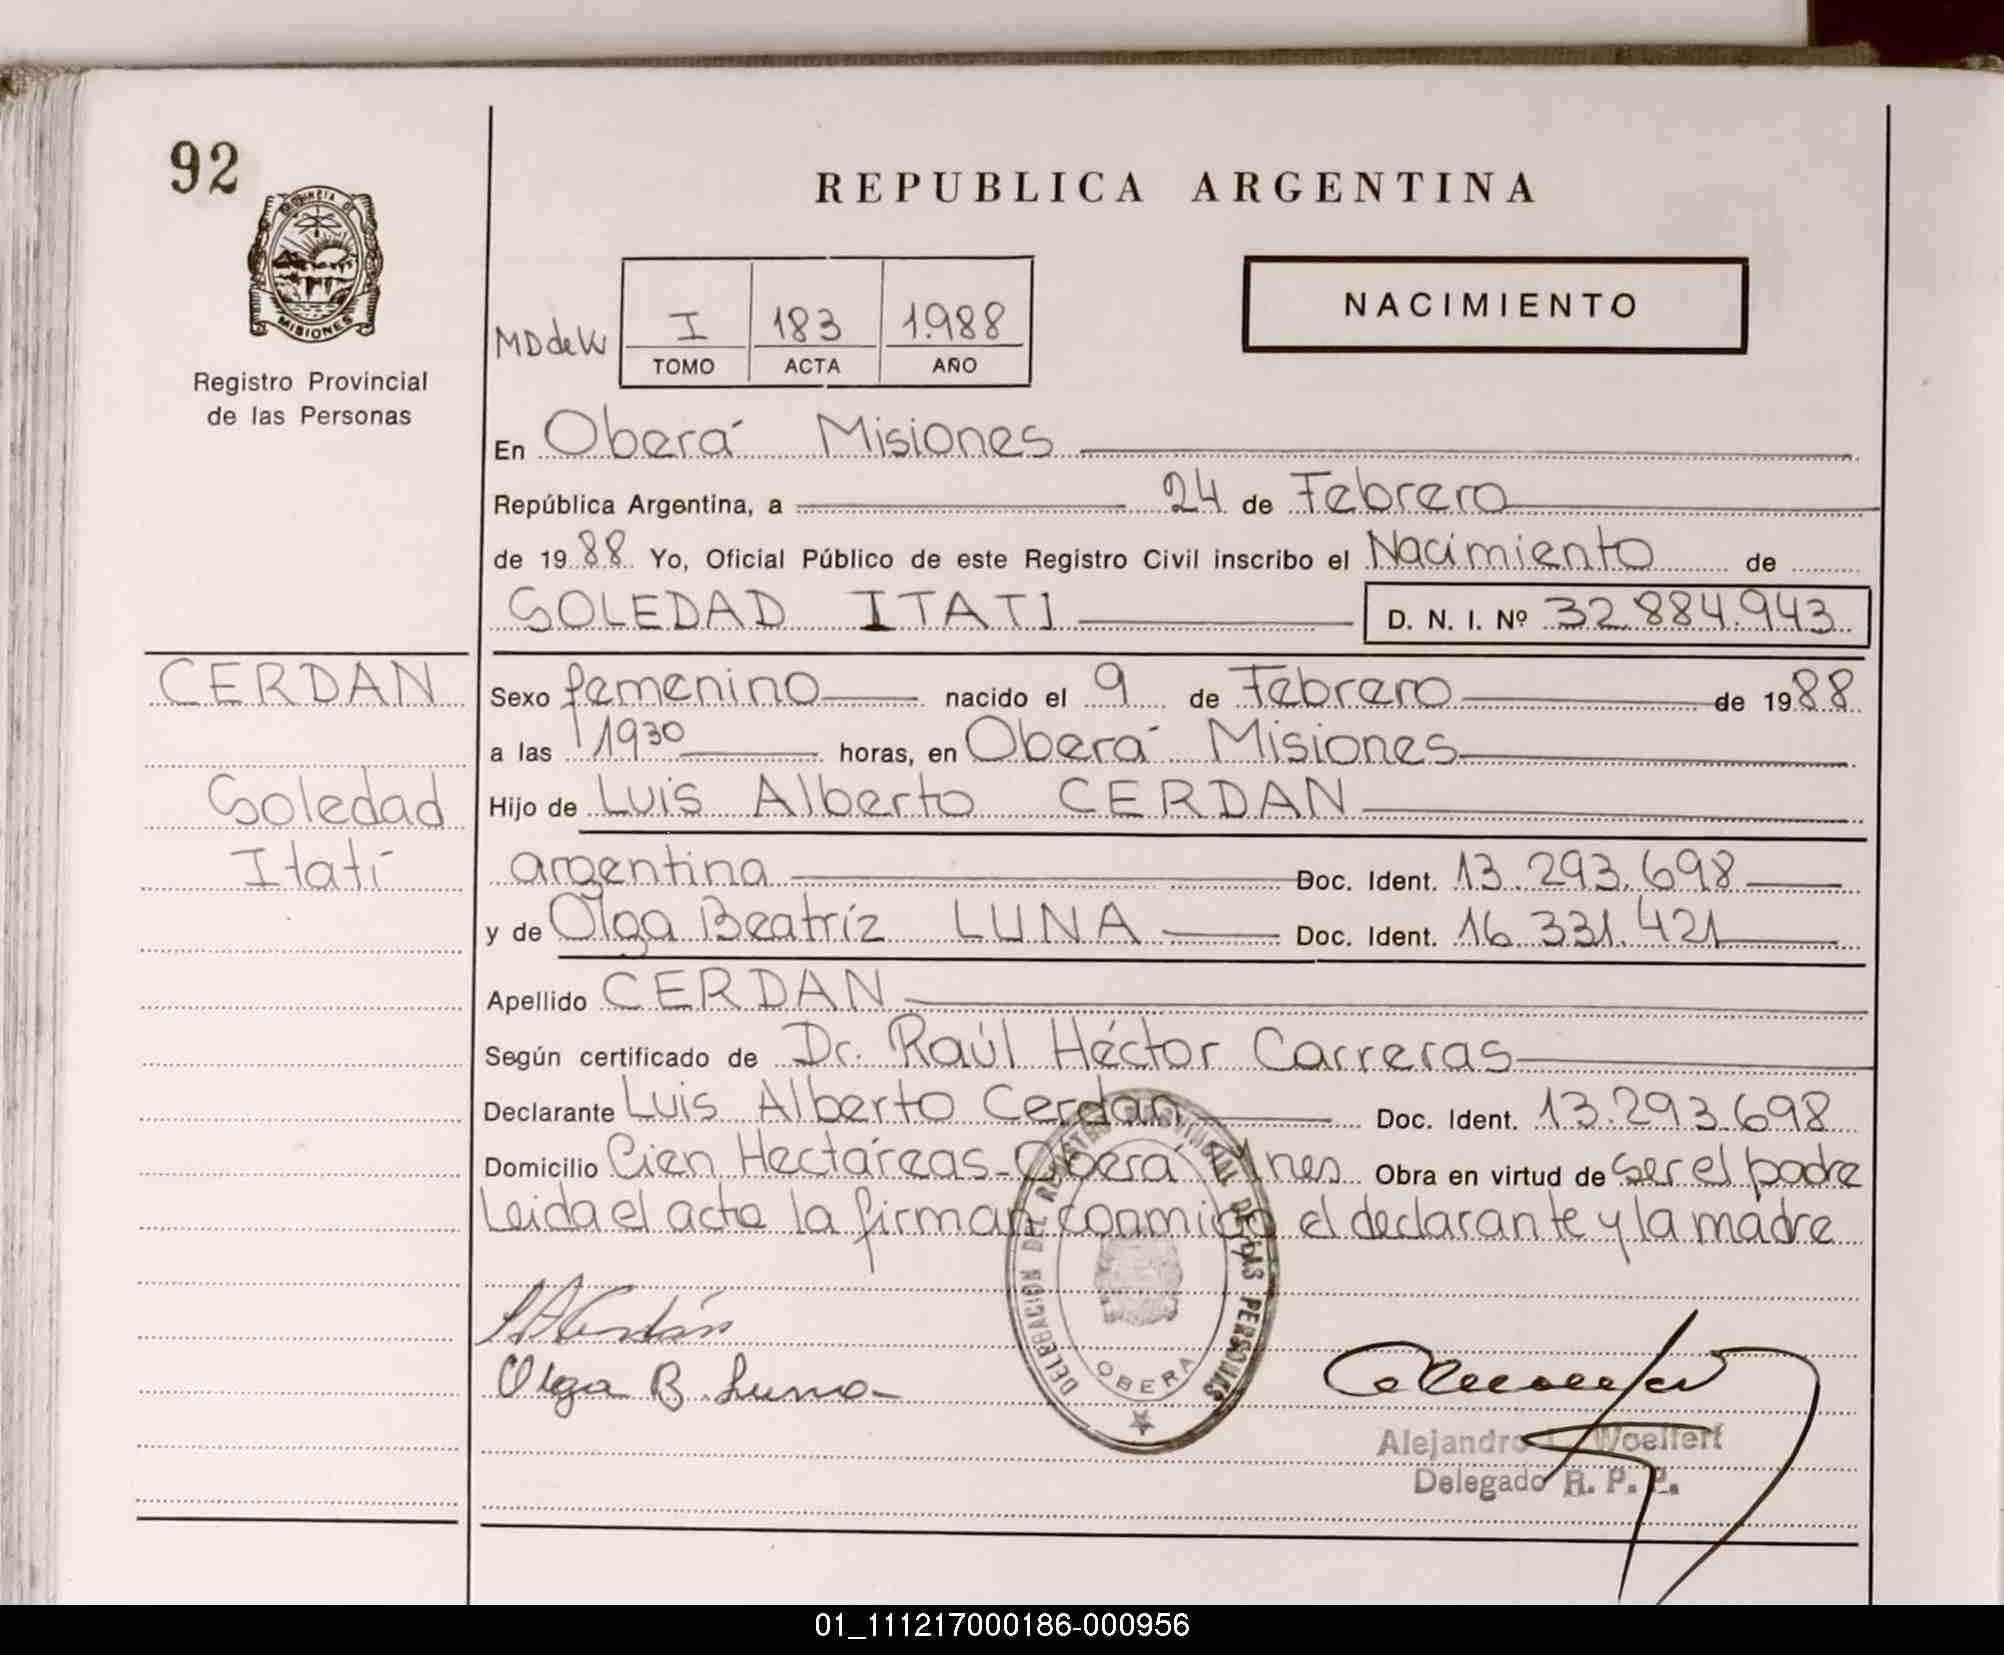 92
PROVINCIA DE
MISIONES
Registro Provincial
de las Personas
REPUBLICA ARGENTINA
NACIMIENTO
MDdeW
I 183 1.988
TOMO ACTA AÑO
En Oberá Misiones
República Argentina, a 24 de Febrero
de 1988 Yo, Oficial Público de este Registro Civil inscribo el Nacimiento de
SOLEDAD ITATI D. N. I. Nº 32.884.943
CERDAN
Soledad
Itatí
Sexo femenino nacido el 9 de Febrero de 1988
a las 1930 horas, en Oberá Misiones
Hijo de Luis Alberto CERDAN
argentina Doc. Ident. 13.293.698
y de Olga Beatríz LUNA Doc. Ident. 16.331.421
Apellido CERDAN
Según certificado de Dr. Raúl Héctor Carreras
Declarante Luis Alberto Cerdan Doc. Ident. 13.293.698
Domicilio Cien Hectáreas - Oberá, Mnes Obra en virtud de ser el padre
Leida el acta la firman conmigo el declarante y la madre
DELEGACION DEL REGISTRO PROVINCIAL DE LAS PERSONAS
OBERA
Olga B. Luna
Alejandro Woelfert
Delegado R. P. P.
01_111217000186-000956